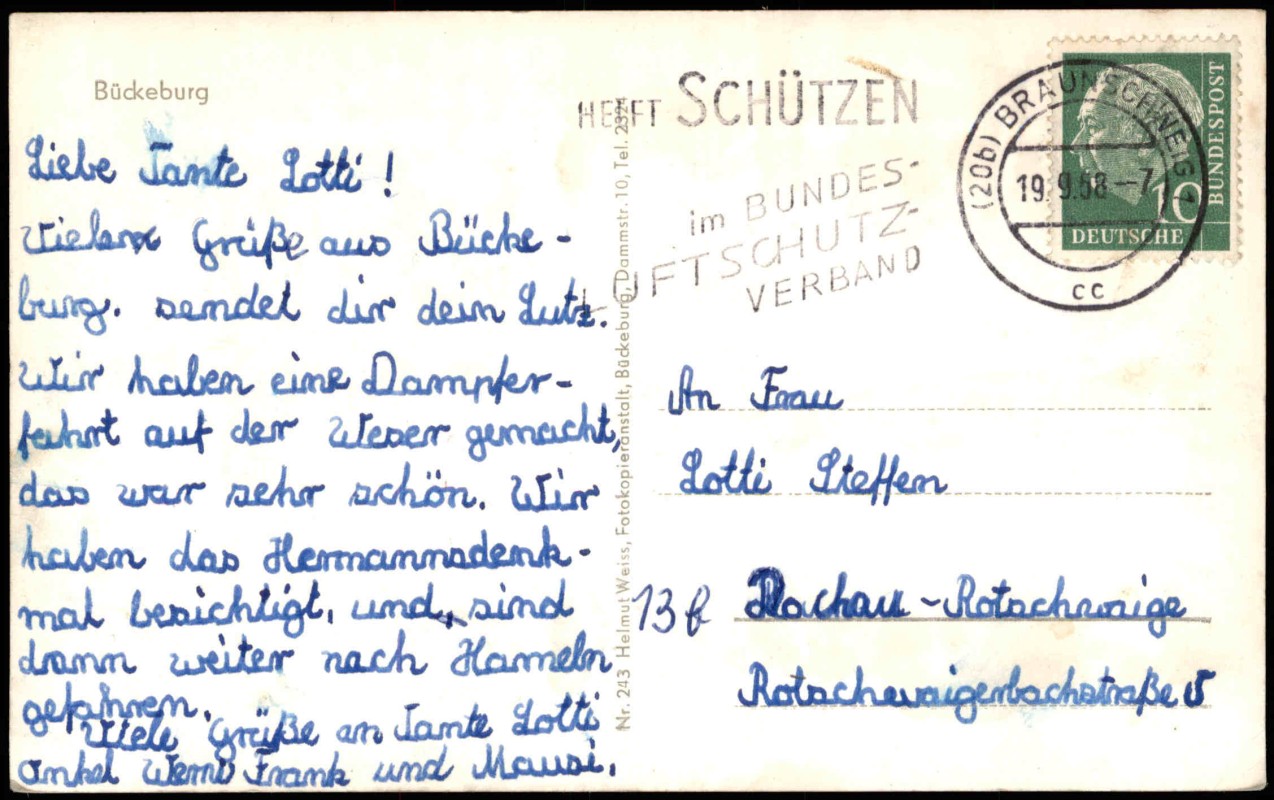 Bückeburg
Liebe Tante Lotti!
Grüße aus Bücke-
burg. sendet dir dein Lutz.
Wir haben eine Dampfer-
fahrt auf der Weser gemacht,
das war sehr schön. Wir
haben das Hermannsdenk-
mal besichtigt, und, sind
dann weiter nach Hameln
gefahren.
Viele Grüße an Tante Lotti
onkel Frank und Mausi.
Nr. 243 Helmut Weiss, Fotokopieranstalt, Bückeburg, Dammstr. 10, Tel. 2324
HELFT SCHÜTZEN
im BUNDES-
LUFTSCHUTZ-
VERBAND
(20b) BRAUNSCHWEIG 1
19.9.58-7
cc
10
BUNDESPOST
DEUTSCHE
An Frau
Lotti Steffen
13b Dachau-Rotschwaige
Rotschwaigerbachstraße